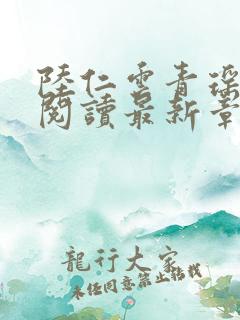 陸仁雲青瑤
閱讀最新章
龍行大家
未經同意禁止轉載